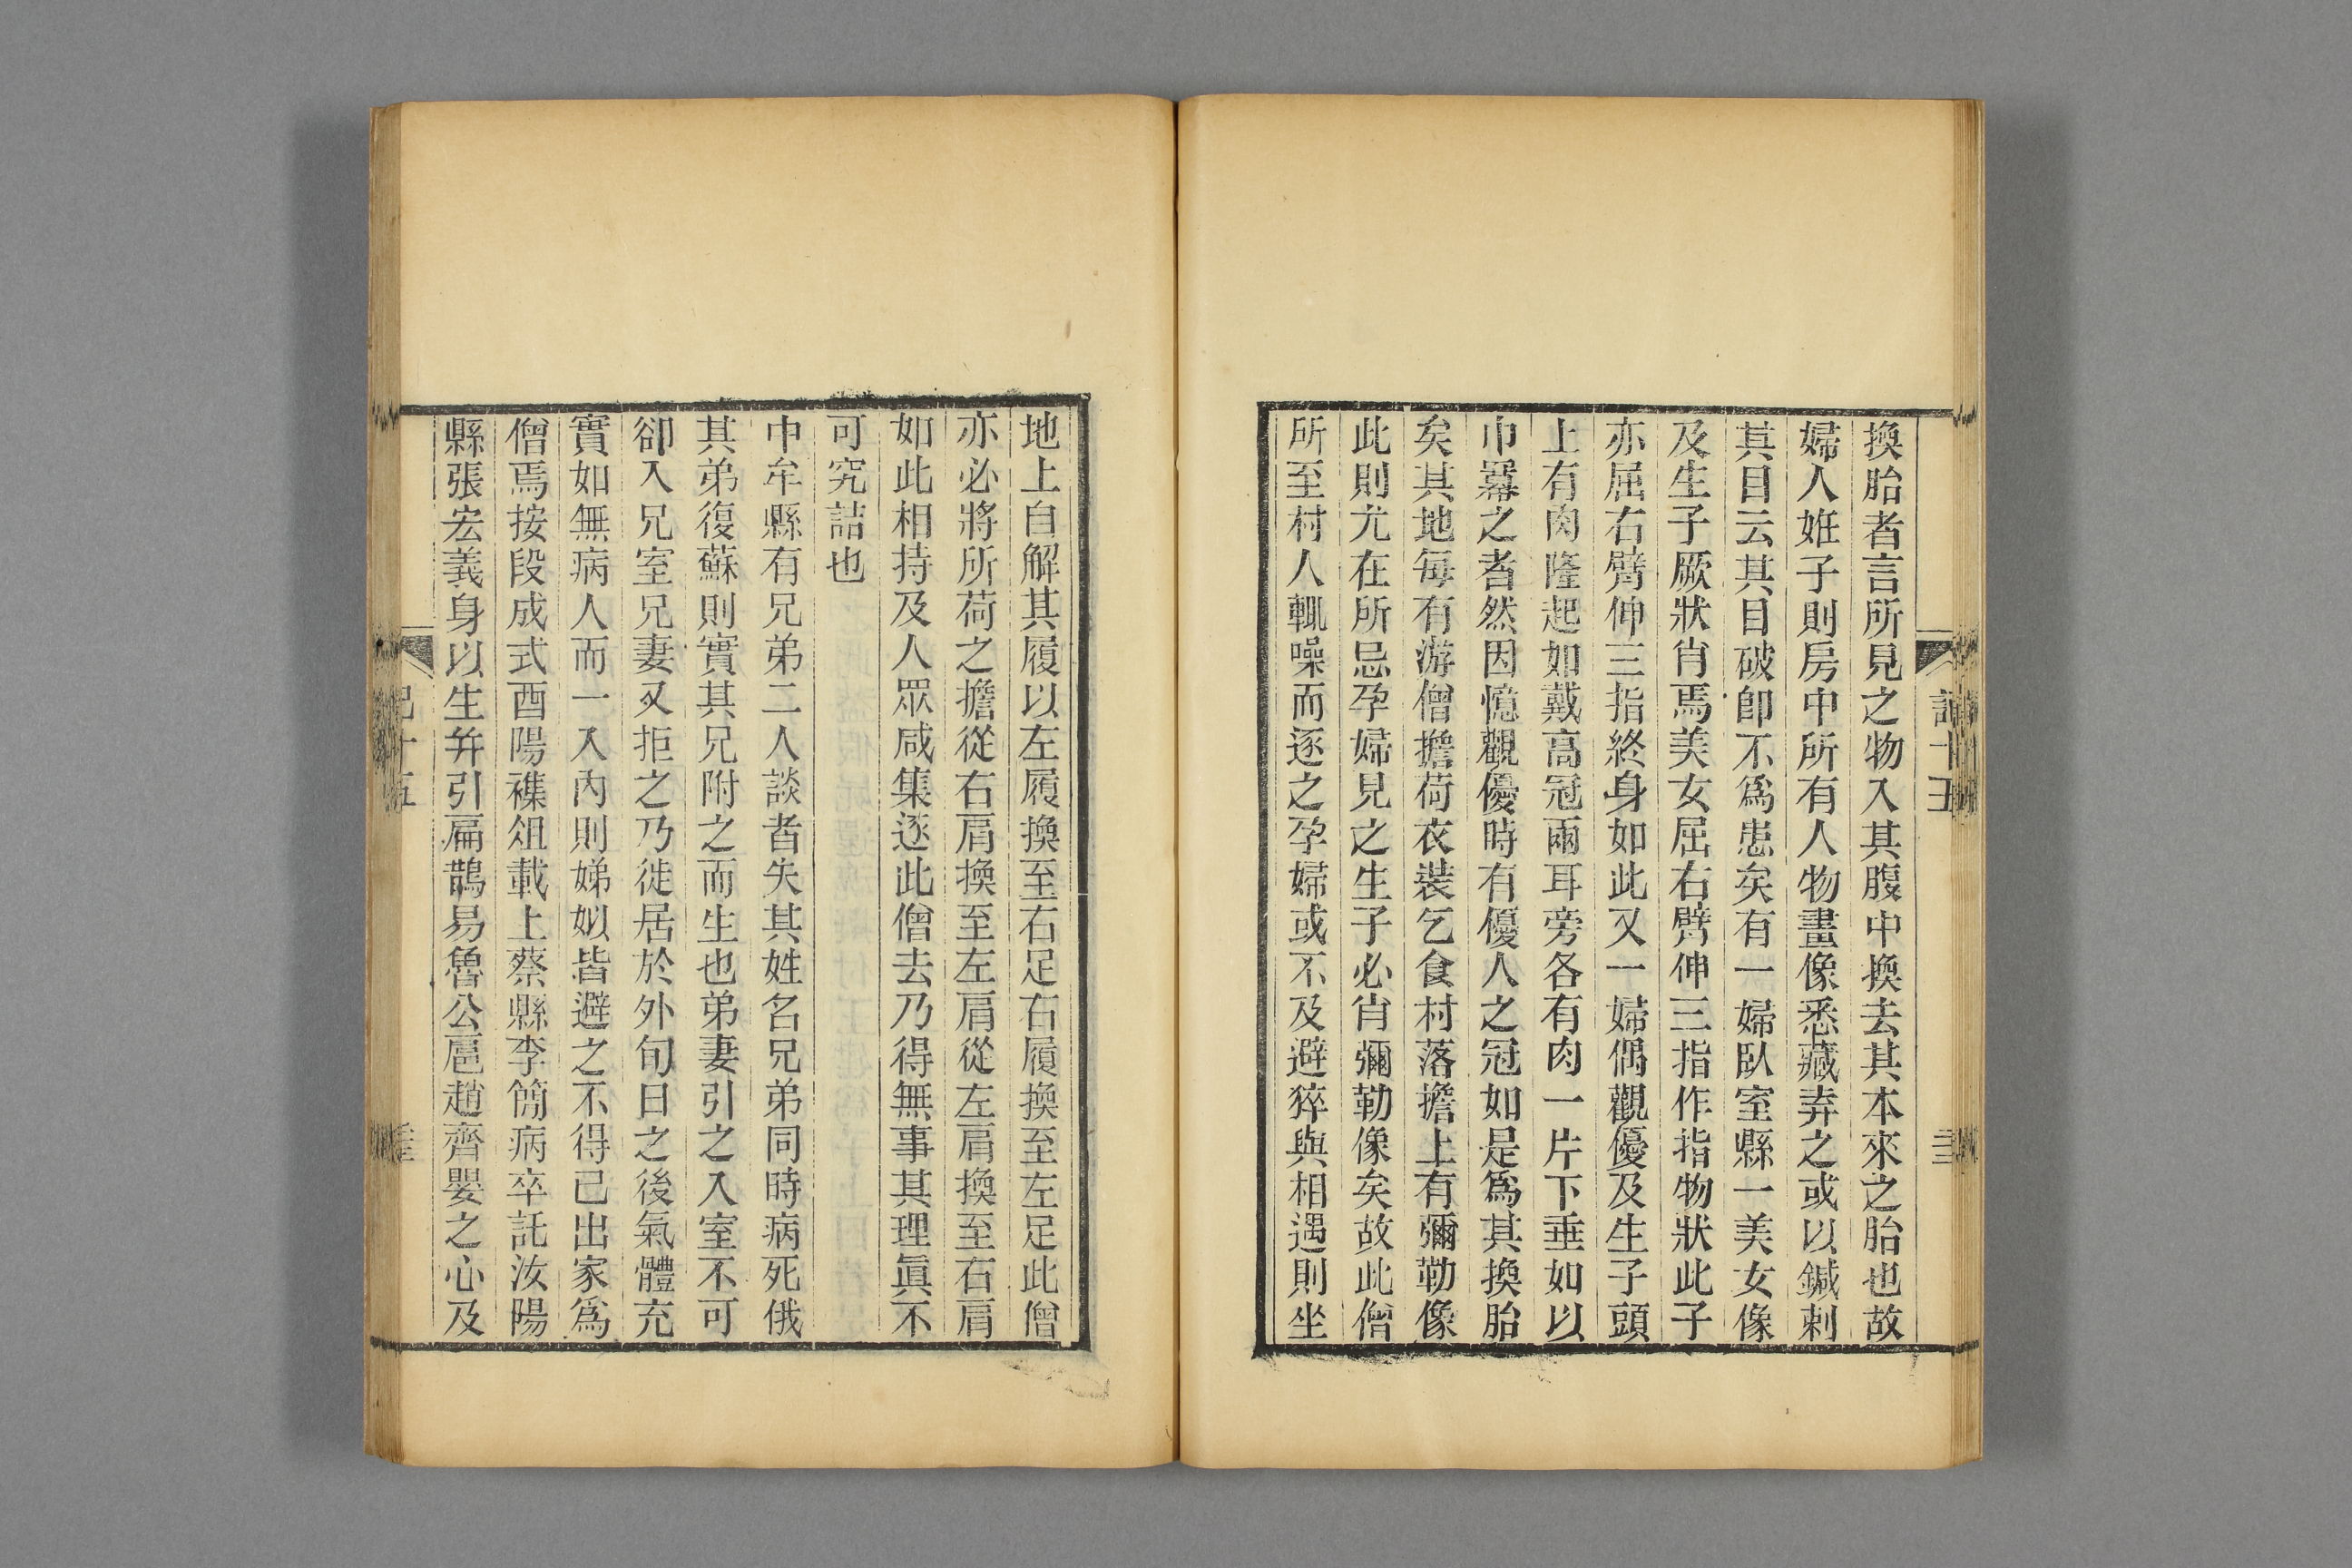 換胎者言所見之物入其腹中換去其本來之胎也故
婦人姙子則房中所有人物畫像悉藏弆之或以鍼刺
其目云其目破卽不爲患矣有一婦臥室縣一美女像
及生子厥狀肖焉美女屈右臂伸三指作指物狀此子
亦屈右臂伸三指終身如此又一婦偶觀優及生子頭
上有肉隆起如戴高冠兩耳旁各有肉一片下垂如以
巾冪之者然因憶觀優時有優人之冠如是爲其換胎
矣其地每有游僧擔荷衣裝乞食村落擔上有彌勒像
此則尤在所忌孕婦見之生子必肖彌勒像矣故此僧
所至村人輒噪而逐之孕婦或不及避猝與相遇則坐
地上自解其履以左履換至右足右履換至左足此僧
亦必將所荷之擔從右肩換至左肩從左肩換至右肩
如此相持及人眾咸集逐此僧去乃得無事其理眞不
可究詰也
中牟縣有兄弟二人談者失其姓名兄弟同時病死俄
其弟復蘇則實其兄附之而生也弟妻引之入室不可
卻入兄室兄妻又拒之乃徙居於外旬日之後氣體充
實如無病人而一入內則娣姒皆避之不得已出家爲
僧焉按段成式酉陽襍俎載上蔡縣李簡病卒託汝陽
縣張宏義身以生幷引扁鵲易魯公扈趙齊嬰之心及